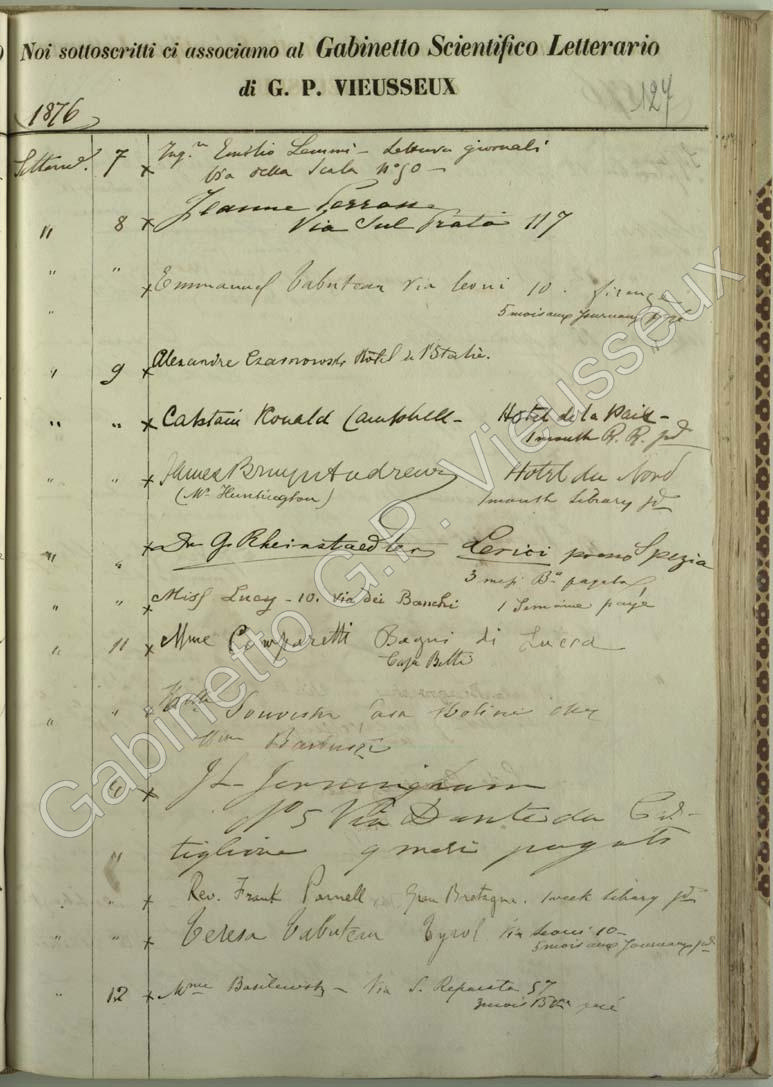 Noi sottoscritti ci associamo al Gabinetto Scientifico Letterario
di G. P. VIEUSSEUX
1876
127
7 x Ing.re Emilio Lemmi - Lettura giornali
Via della Scala No 50 -
" 8 x Jeanne
Via Sul Prato 117
" " x Emmanuel Tabuteau Via Leoni 10. firenze
5 mois aux Journaux payé
" 9 x Alexandre Hôtel de l'Italie.
" " x Captain Ronald Campbell - Hotel de la Paix -
1 month R. R. pd
" " x James Bruyn Andrews Hotel du Nord
(Mr Huntington) 1 month Library pd
" " x Dr G. Rheinstaedter Lerici presso Spezia
3 mesi
" " x Miss Lucy - 10. Via dei Banchi 1 Semaine payé
" 11 x Mme Comparetti Bagni di Lucca
Casa Betti
" " Souvestre Casa Molini chez
Mme
" x J L Jerningham
No 5 Via Dante da Cas-
" tiglione 9 mesi pagati
" " x Rev. Frank Parnell Gran Bretagna. 1 week Library pd
" " x Teresa Tabuteau Tyrol Via Leoni 10 -
5 mois aux Journaux pd
" 12 x Mme Basilewsky - Via S. Reparata 57
3 mois payé
Gabinetto G.P. Vieusseux